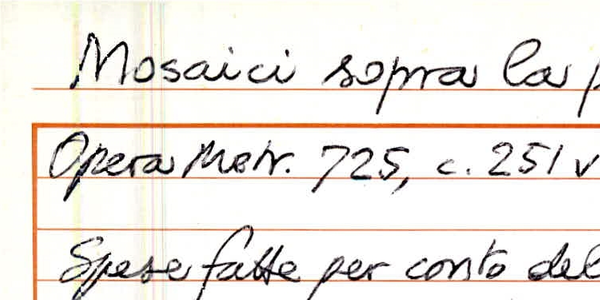 Mosaici sopra la p
Opera Metr. 725, c. 251 v
Spese fatte per conto del